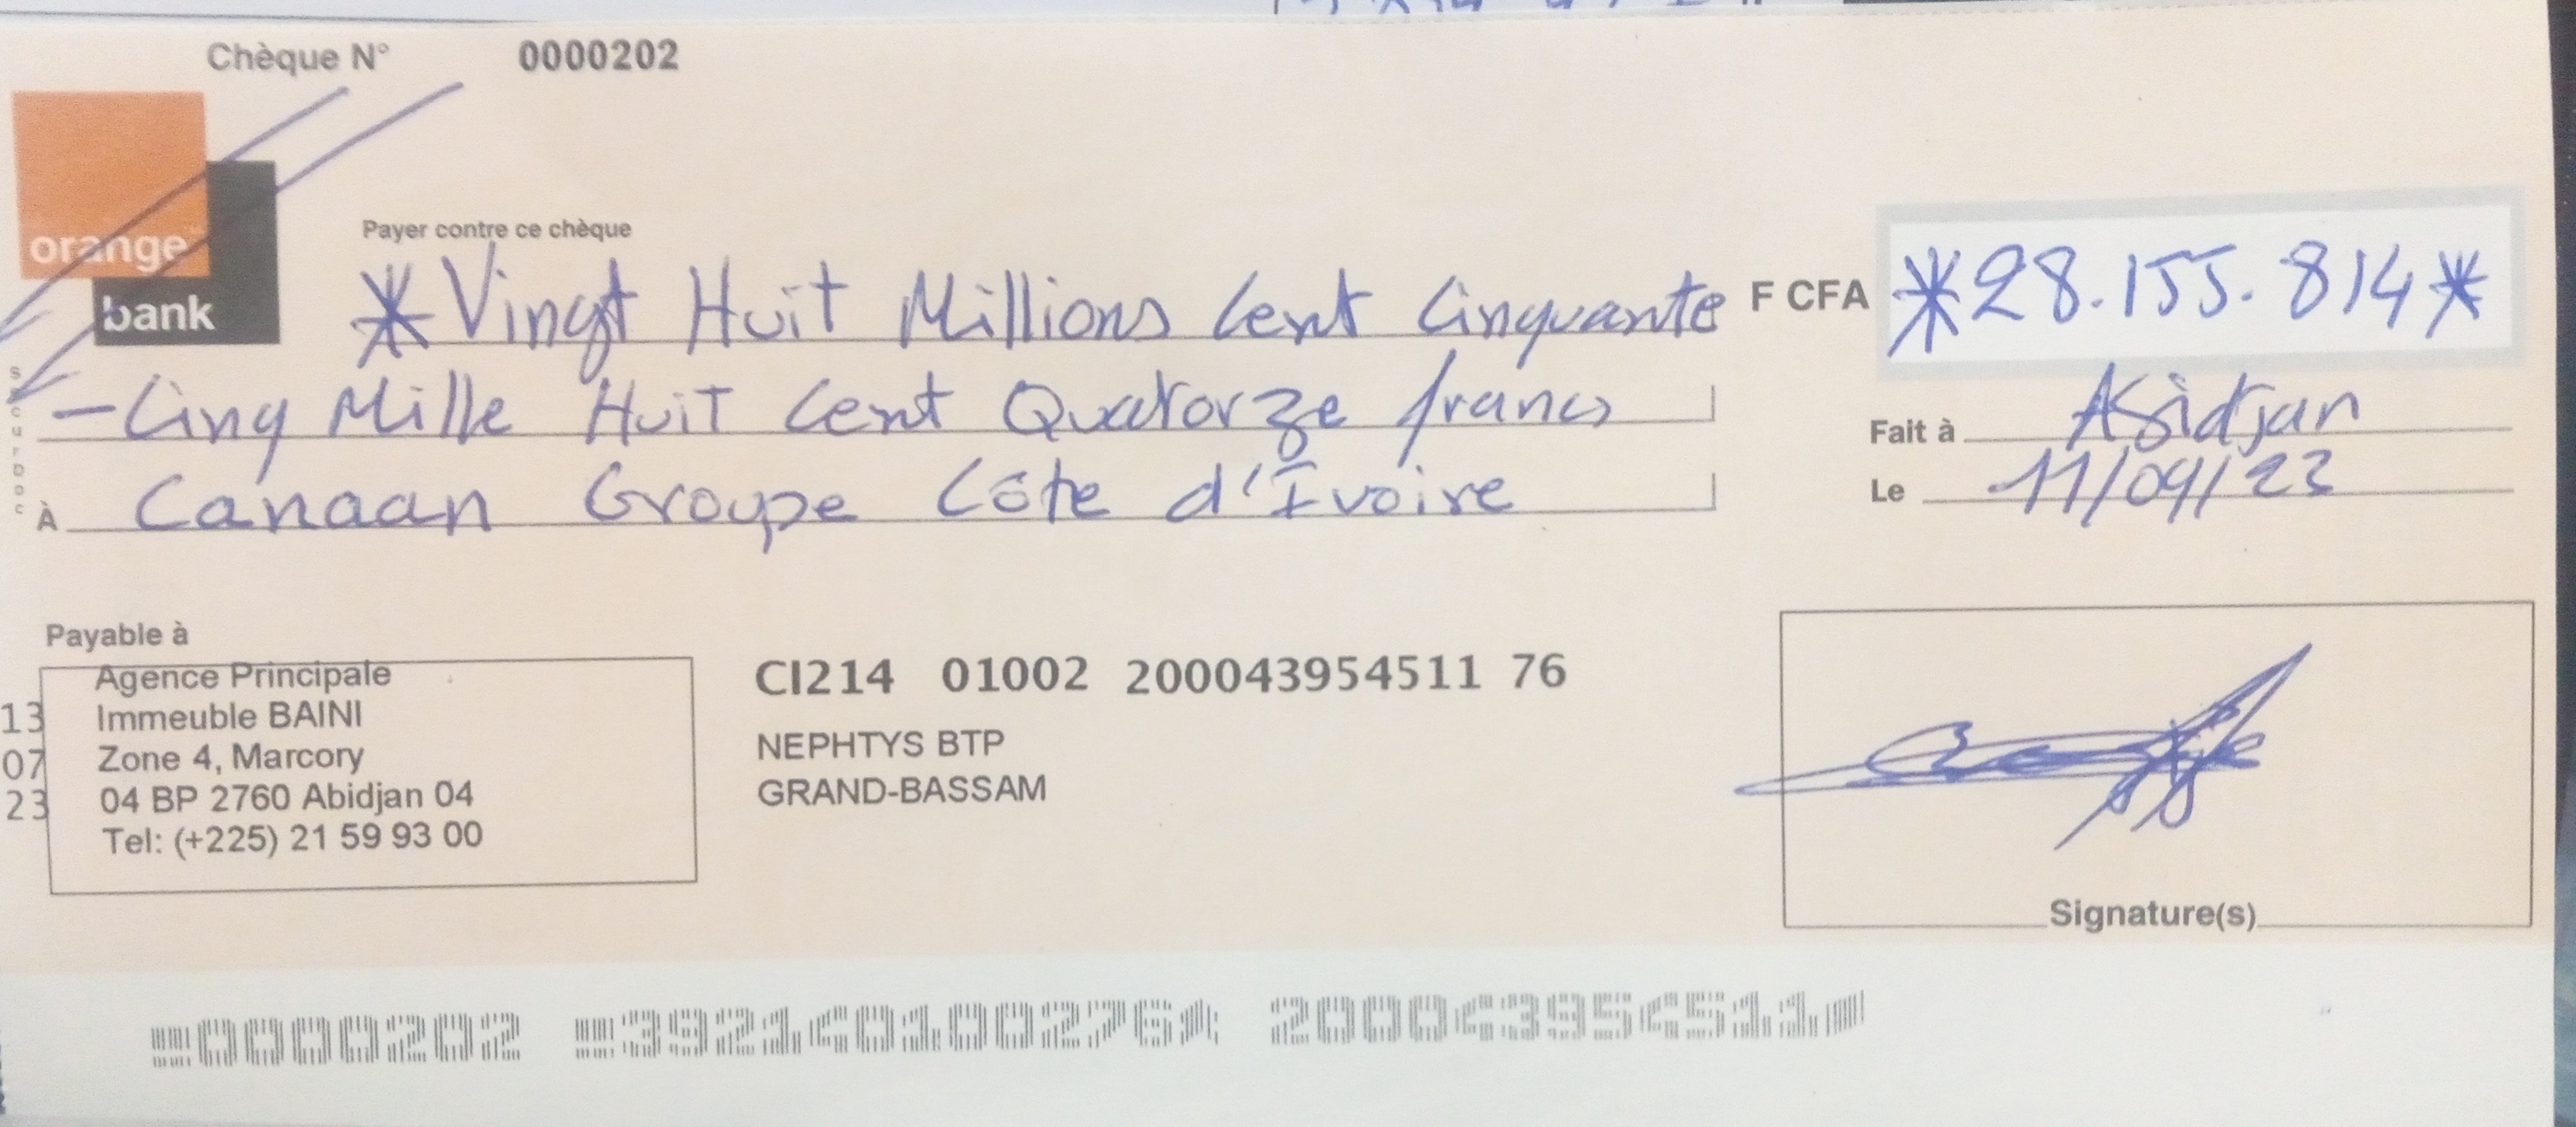 Chèque N° 0000202
orange
bank
Payer contre ce chèque
*Vingt Huit Millions Cent Cinquante F CFA *28.155.814*
-Cinq Mille Huit Cent Quatorze francs
Fait à Abidjan
À Canaan Groupe Côte d'Ivoire
Le 11/09/23
SecurDoc
Payable à
Agence Principale
Immeuble BAINI
Zone 4, Marcory
04 BP 2760 Abidjan 04
Tel: (+225) 21 59 93 00
13
07
23
CI214 01002 200043954511 76
NEPHTYS BTP
GRAND-BASSAM
Signature(s)
0000202 392140100276 200043954511